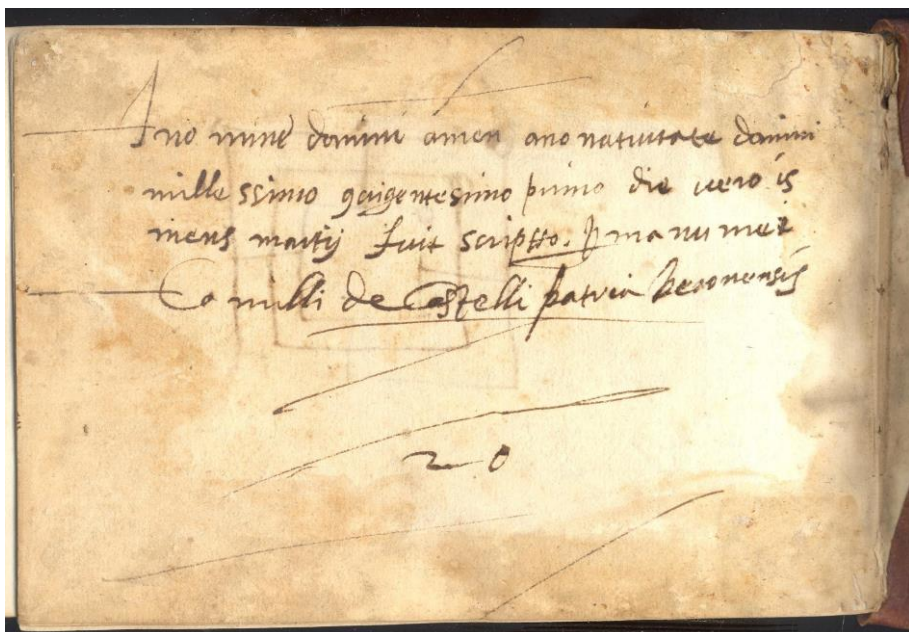 Ano mine domini amen ano nativitate domini
mille ssimo qqigentesimo primo die vero is
mens martij fuit scriptto. p manu mei
Camilli de Castelli patria veronensis
20